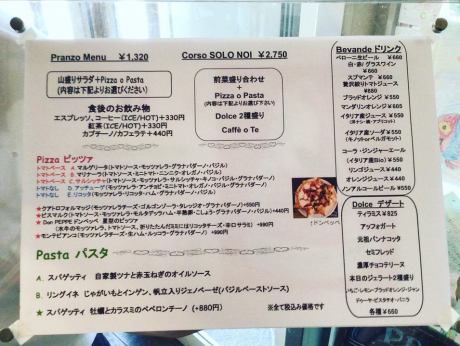 Pranzo Menu ￥1,320
山盛りサラダ+Pizza o Pasta
(内容は下記よりお選びください)
食後のお飲み物
エスプレッソ、コーヒー(ICE/HOT)+330円
紅茶(ICE/HOT)+330円
カプチーノ/カフェラテ+440円
Corso SOLO NOI ￥2,750
前菜盛り合わせ
+
Pizza o Pasta
(内容は下記よりお選びください)
+
Dolce 2種盛り
Caffè o Te
Bevande ドリンク
ペローニ生ビール ¥660
白・赤/グラスワイン
¥660
スプマンテ ¥660
贅沢搾りトマトジュース
¥880
ブラッドオレンジ ¥550
マンダリンオレンジ ¥605
イタリア産ジュース ¥550
イタリア産ソーダ ¥550
コーラ・ジンジャーエール
(イタリア産Bio) ¥550
リンゴジュース ¥440
オレンジジュース ¥440
ノンアルコールビール ¥550
Pizza ピッツァ
トマトベース A. マルゲリータ(トマトソース・モッツァレラ・グラナパダーノ・バジル)
トマトベース B. マリナーラ(トマトソース・ミニトマト・ニンニク・オレガノ・バジル)
トマトベース C. サルシッチャ(トマトソース・サルシッチャ・キノコ・バジル・グラナパダーノ)
トマトなし D. アッチューゲ(モッツァレラ・アンチョビ・ミニトマト・オレガノ・グラナパダーノ)
トマトなし E. リコッタ(モッツァレラ・リコッタ・ハム・グラナパダーノ・バジル)
★クアトロフォルマッジ(モッツァレラチーズ・ゴルゴンゾーラ・タレッジョ・グラナパダーノ)+550円
★ビスマルク(トマトソース・モッツァレラ・モルタデッラハム・半熟卵・こしょう・グラナパダーノ・バジル)+440円
★Don PEPPE ドンペッペ 星型のピッツァ
(水牛のモッツァレラ、トマトソース、折りたたんだミミにはリコッタチーズ・辛口サラミ) +990円
★モンテビアンコ(モッツァレラチーズ・生ハム・ルッコラ・グラナパダーノ)+990円
↑ドンペッペ
Pasta パスタ
A. スパゲッティ 自家製ツナと赤玉ねぎのオイルソース
B. リングイネ じゃがいもとインゲン、帆立入りジェノベーゼ(バジルペーストソース)
★ スパゲッティ 牡蠣とカラスミのペペロンチーノ (+880円) ※全て税込み価格です
Dolce デザート
ティラミス ¥825
アッフォガート
元祖パンナコッタ
セミフレッド
濃厚チョコテリーヌ
本日のジェラート2種盛り
各種 ¥660